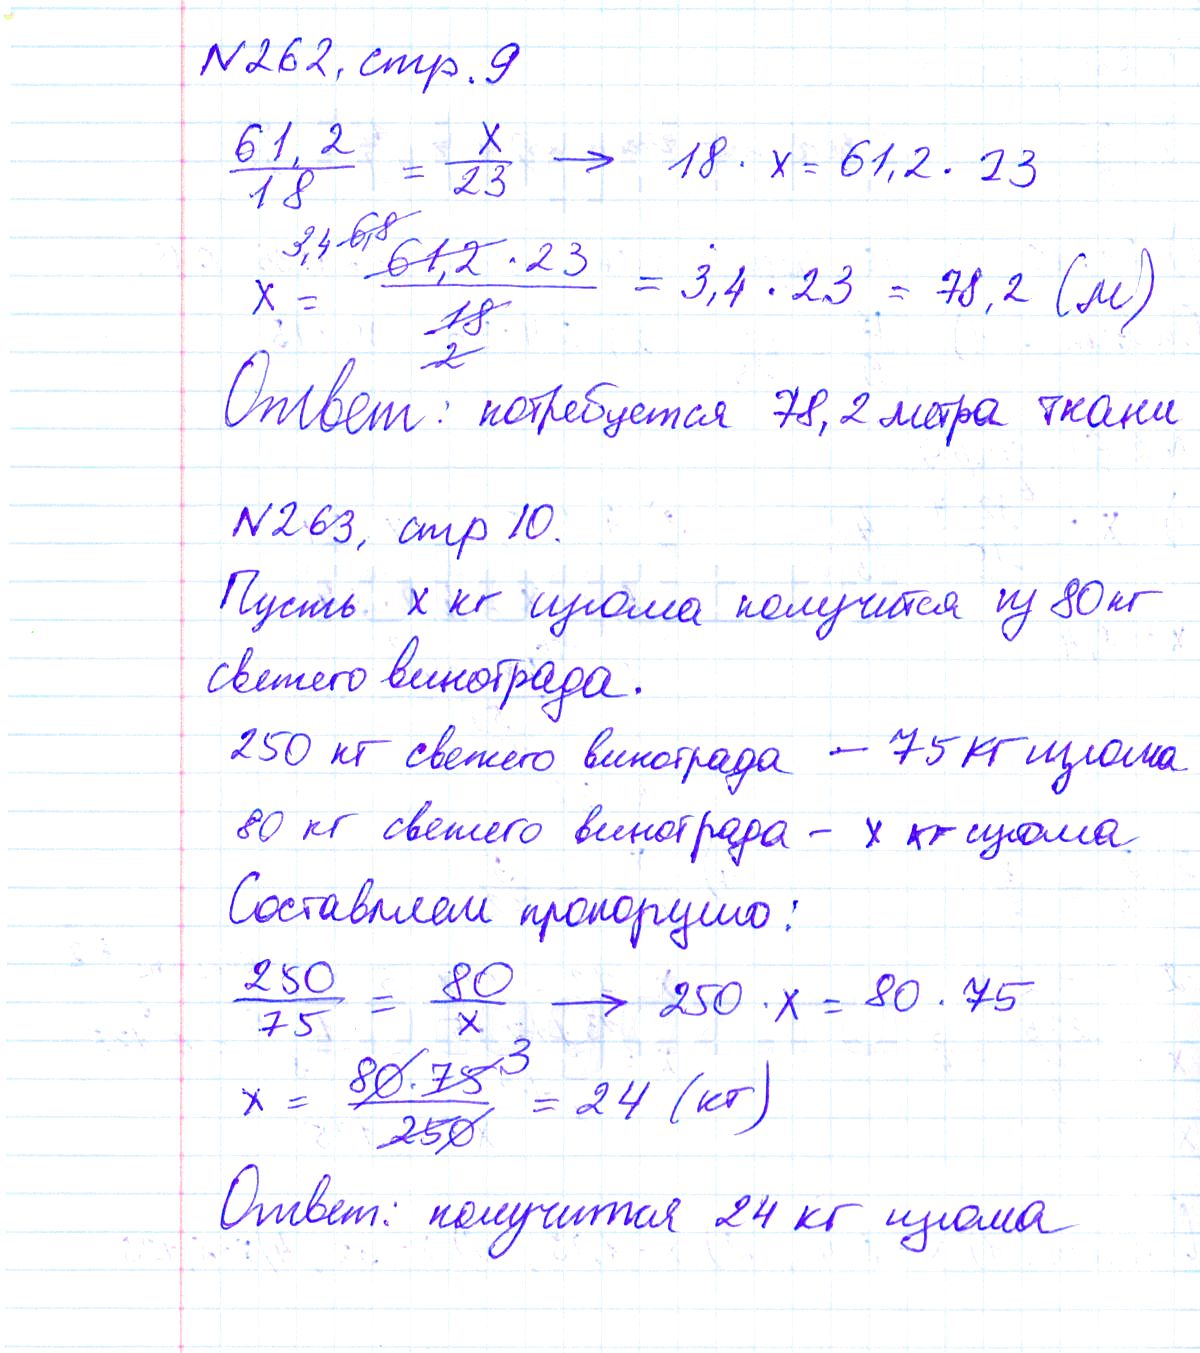 N262, стр. 9
61,2/18 = x/23 → 18 · x = 61,2 · 23
x = 3,4 6,8 61,2 · 23 / 18 2 = 3,4 · 23 = 78,2 (м)
Ответ: потребуется 78,2 метра ткани
N263, стр 10.
Пусть x кг изюма получится из 80 кг
свежего винограда.
250 кг свежего винограда – 75 кг изюма
80 кг свежего винограда – x кг изюма
Составляем пропорцию:
250/75 = 80/x → 250 · x = 80 · 75
x = 80 · 75 3 / 250 = 24 (кг)
Ответ: получится 24 кг изюма